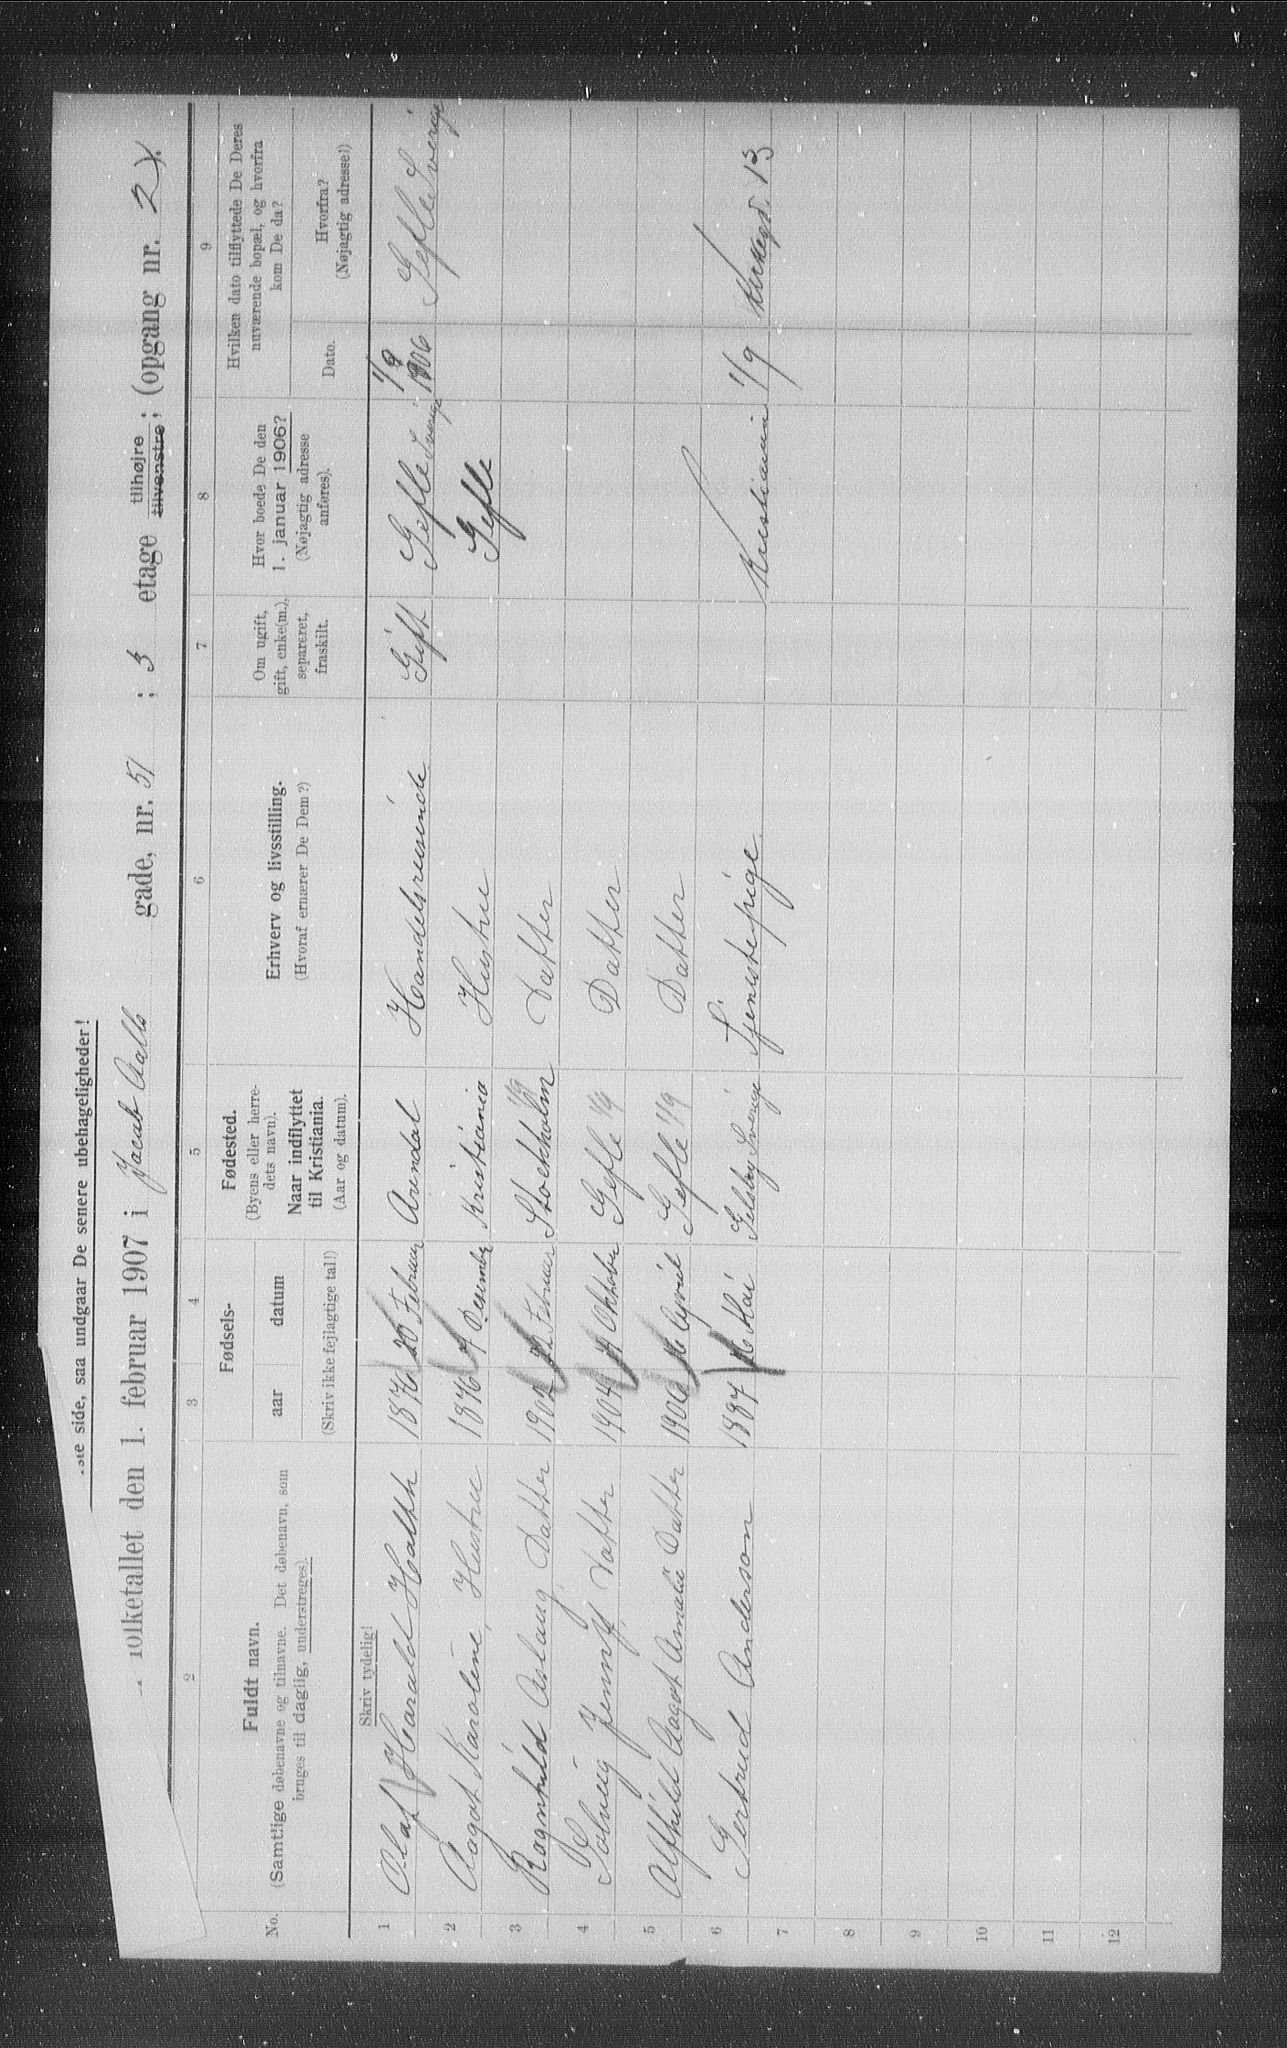 side, saa undgaar De senere ubehageligheder!
folketallet den 1. februar 1907 i Jacob Aalls gade, nr. 51; 3 etage tilhøjre tilvenstre; (opgang nr. 2).
2 3 4 5 6 7 8 9
No.
Fuldt navn.
(Samtlige døbenavne og tilnavne. Det døbenavn, som
bruges til daglig, understreges).
Fødsels-
aar datum
(Skriv ikke fejlagtige tal!)
Fødested.
(Byens eller herre-
dets navn).
Naar indflyttet
til Kristiania.
(Aar og datum).
Erhverv og livsstilling.
(Hvoraf ernærer De Dem?)
Om ugift,
gift, enke(m.),
separeret,
fraskilt.
Hvor boede De den
1. januar 1906?
(Nøjagtig adresse
anføres).
Hvilken dato tilflyttede De Deres
nuværende bopæl, og hvorfra
kom De da?
Dato.
Hvorfra?
(Nøjagtig adresse!)
Skriv tydelig!
1 Olaf Harald Halth 1876 20 Februar Arendal Handelsreisende Gift Gefle Sverige 1/9 1906 Gefle Sverige
2 Aagot Karoline, Hustru 1876 7 Desember Kristiania Hustru Gefle
3 Ragnhild Aslaug, Datter 1902 22 Februar Stockholm 1/9 Datter
4 Solveig Jenny, Datter 1904 4 Oktober Gefle 1/9 Datter
5 Alfhild Aagot Amalie Datter 1906 16 April Gefle 1/9 Datter
6 Gertrud Anderson 1887 16 Mai Sverige Tjenestepige Kristiania 1/9 Kirkegd. 13
7
8
9
10
11
12